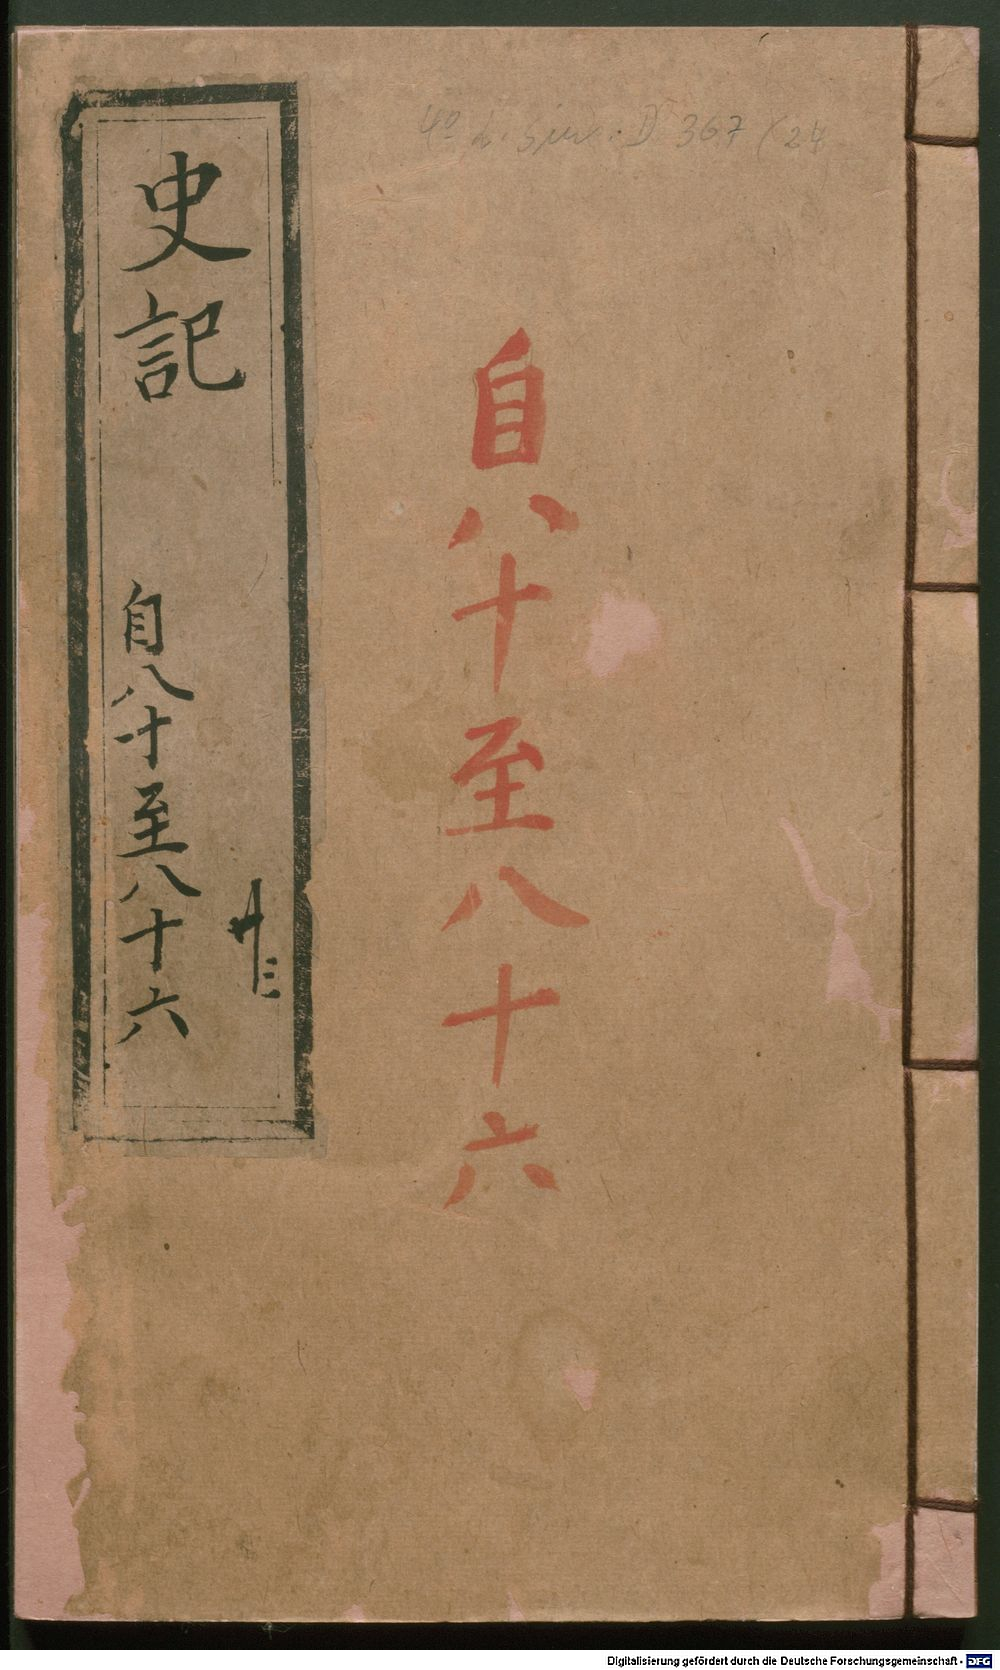 4º L. sin. D 367 (24
自八十至八十六
史記
自八十至八十六
廿三
Digitalisierung gefördert durch die Deutsche Forschungsgemeinschaft - DFG